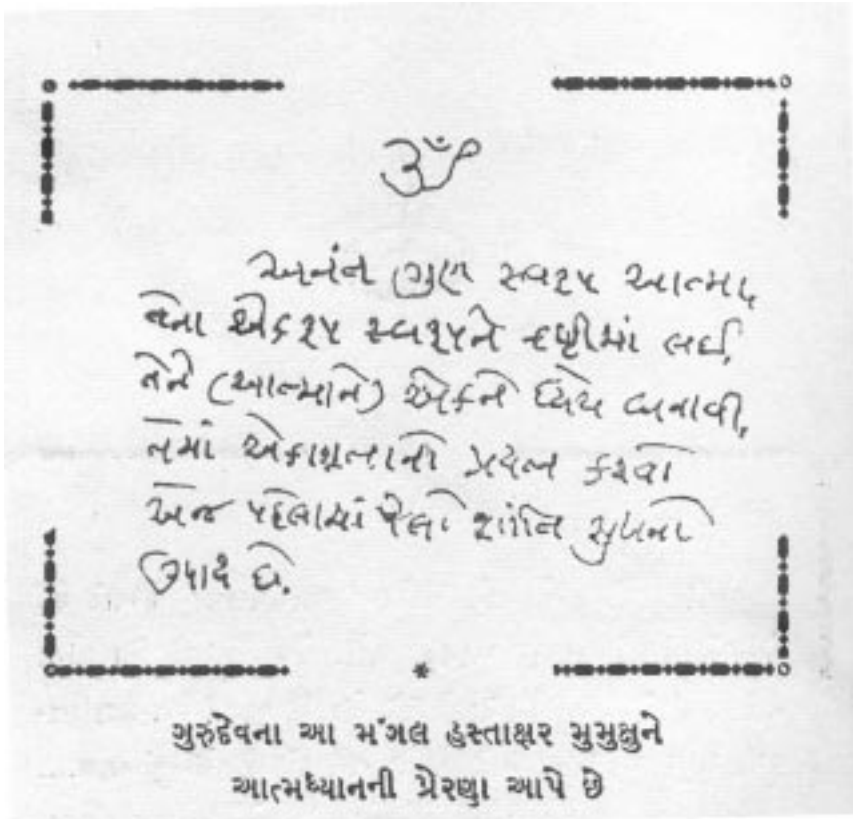 ૐ
અનંત ગુણ સ્વરૂપ આત્મા,
તેના એકરૂપ સ્વરૂપને દ્રષ્ટીમાં લઈ,
તેને (આત્માને) એકને ધ્યેય બનાવી,
તેમાં એકાગ્રતાનો પ્રયત્ન કરવો
એજ પહેલામાં પેલો શાંતિ સુખનો
ઉપાય છે.
*
ગુરુદેવના આ મંગલ હસ્તાક્ષર મુમુક્ષુને
આત્મધ્યાનની પ્રેરણા આપે છે